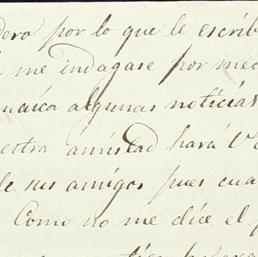 dero por lo que le escrib
me indagase por med
maica algunas noticias
estra amistad hará V
de sus amigos pues cua
Como no me dice el p